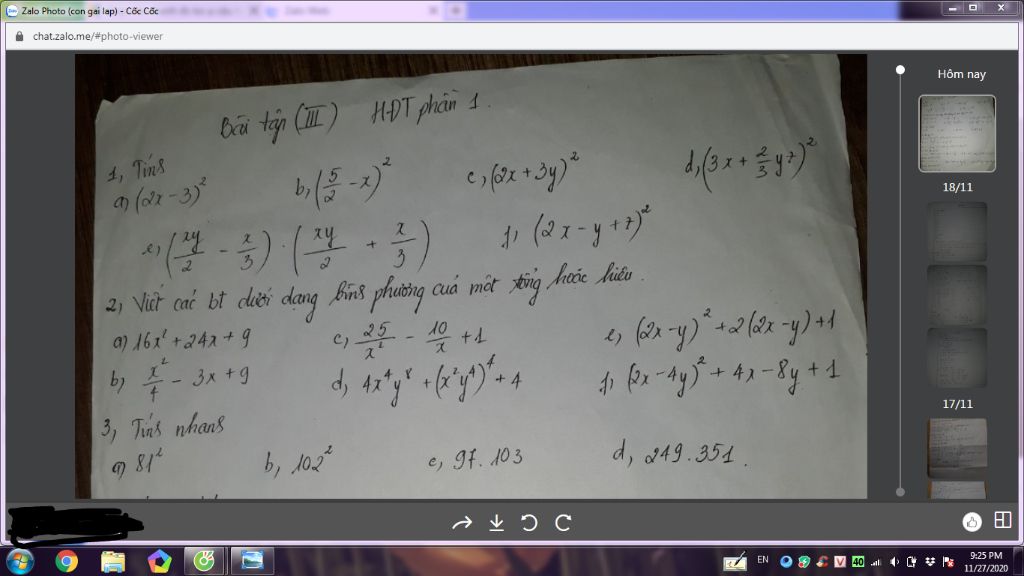 Zalo Photo (con gai lap) - Cốc Cốc
Zalo Web
chat.zalo.me/#photo-viewer
Hôm nay
18/11
17/11
Bài tập (III) HĐT phần 1.
1, Tính
a, (2x - 3)² b, (5/2 - x)² c, (2x + 3y)² d, (3x + 2/3 yz)²
e, (xy/2 - x/3) . (xy/2 + x/3) f, (2x - y + 7)²
2, Viết các bt dưới dạng bình phương của một tổng hoặc hiệu.
a, 16x² + 24x + 9 c, 25/x² - 10/x + 1 e, (2x - y)² + 2(2x - y) + 1
b, x²/4 - 3x + 9 d, 4x⁴y⁸ + (x²y⁴)⁴ + 4 f, (2x - 4y)² + 4x - 8y + 1
3, Tính nhanh
a, 81² b, 102² c, 97.103 d, 249.351.
EN
40
9:25 PM
11/27/2020